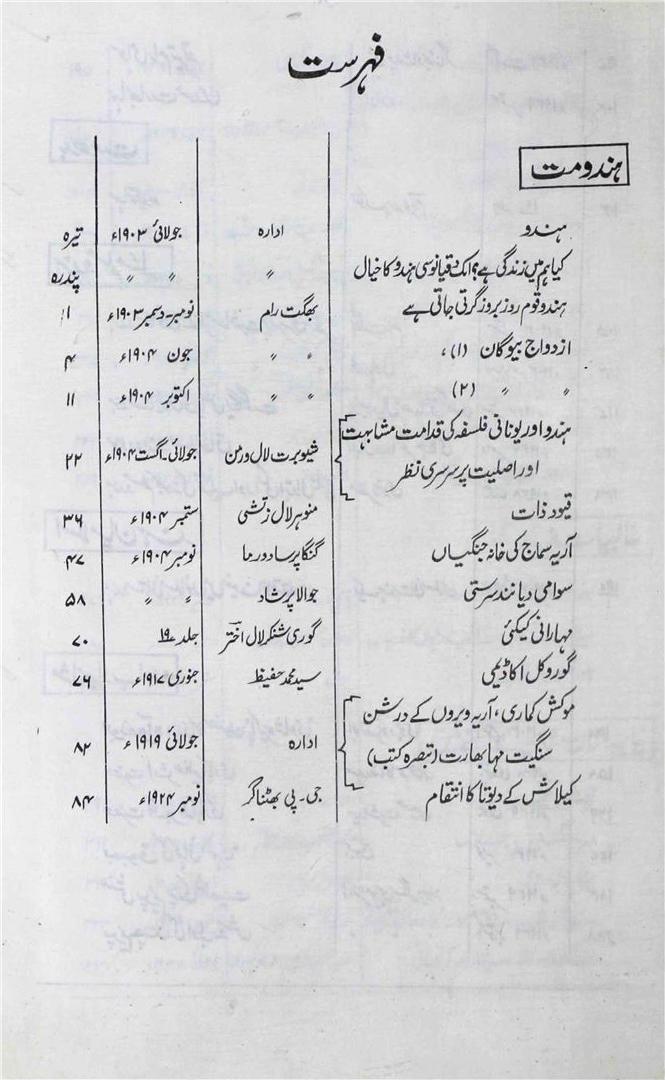 فہرست
ہندومت
ہندو ادارہ جولائی ۱۹۰۳ء تیرہ
کیا ہم میں زندگی ہے؟ ایک دقیانوسی ہندو کا خیال " " " پندرہ
ہندو قوم روز بروز گرتی جاتی ہے بھگت رام نومبر-دسمبر ۱۹۰۳ء ۱
ازدواج بیوگان (۱) ، " " جون ۱۹۰۴ء ۴
" " (۲) " " اکتوبر ۱۹۰۴ء ۱۱
ہندو اور یونانی فلسفہ کی قدامت مشابہت
اور اصلیت پر سرسری نظر شیوبرت لال ورمن جولائی-اگست ۱۹۰۴ء ۲۲
قیود ذات منوہر لال زتشی ستمبر ۱۹۰۴ء ۳۶
آریہ سماج کی خانہ جنگیاں گنگا پرساد ورما نومبر ۱۹۰۴ء ۴۷
سوامی دیانند سرستی جوالا پرشاد " " ۵۸
مہارانی کیکئی گوری شنکر لال اختر جلد ۱۹ ۷۰
گوروکل اکاڈیمی سید محمد حفیظ جنوری ۱۹۱۷ء ۷۶
موکش کماری، آریہ ویروں کے درشن
سنگیت مہا بھارت (تبصرہ کتب) ادارہ جولائی ۱۹۱۹ء ۸۲
کیلاش کے دیوتا کا انتقام جی-پی بھٹناگر نومبر ۱۹۲۴ء ۸۴